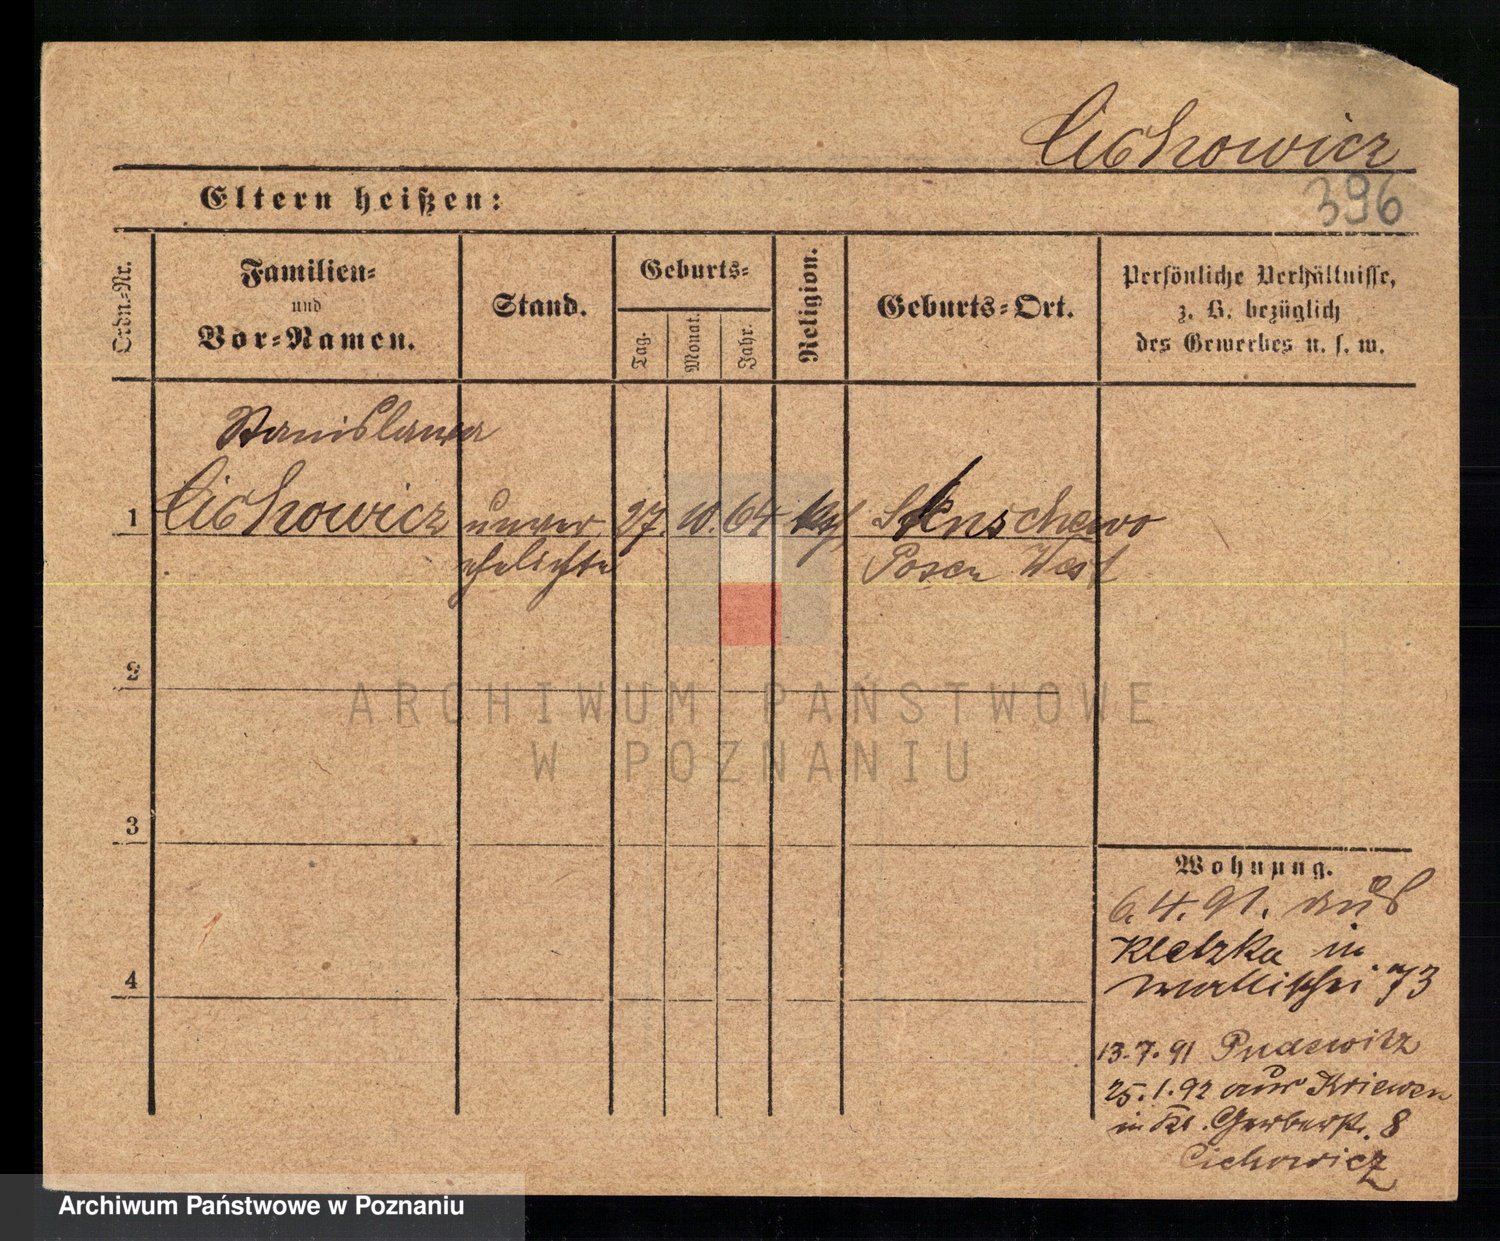 Cichowicz
Eltern heißen:
396
Ordn.-Nr.
Familien-
und
Vor-Namen.
Stand.
Geburts-
Tag.
Monat.
Jahr.
Religion.
Geburts-Ort.
Persönliche Verhältnisse,
z. B. bezüglich
des Gewerbes u. s. w.
Stanislawa
1 Cichowicz unver 27. 10. 64 kath
ehelichte Posen West
2
3
4
Wohnung.
6. 4. 91. aus
Kletzko in
Wallischei 73
13. 7. 91 Pudewitz
25. 1. 92 aus Kriewen
in Kl. Gerberstr. 8
Cichowicz
ARCHIWUM PAŃSTWOWE
W POZNANIU
Archiwum Państwowe w Poznaniu